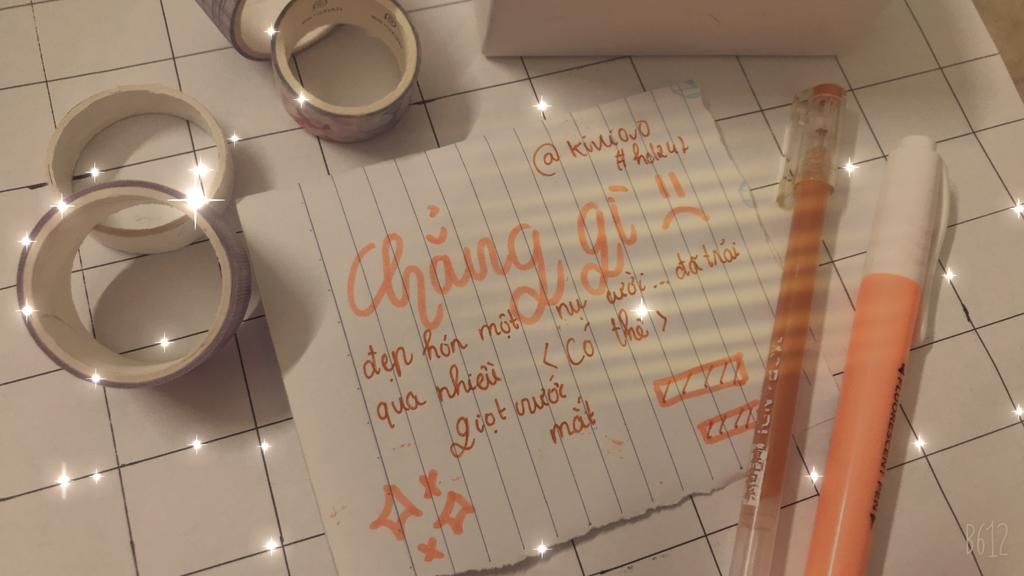 @ kiwiovo
chẳng gì
đẹp hơn một nụ cười... đã trải
qua nhiều < Có thể >
giọt nước
mắt
B612